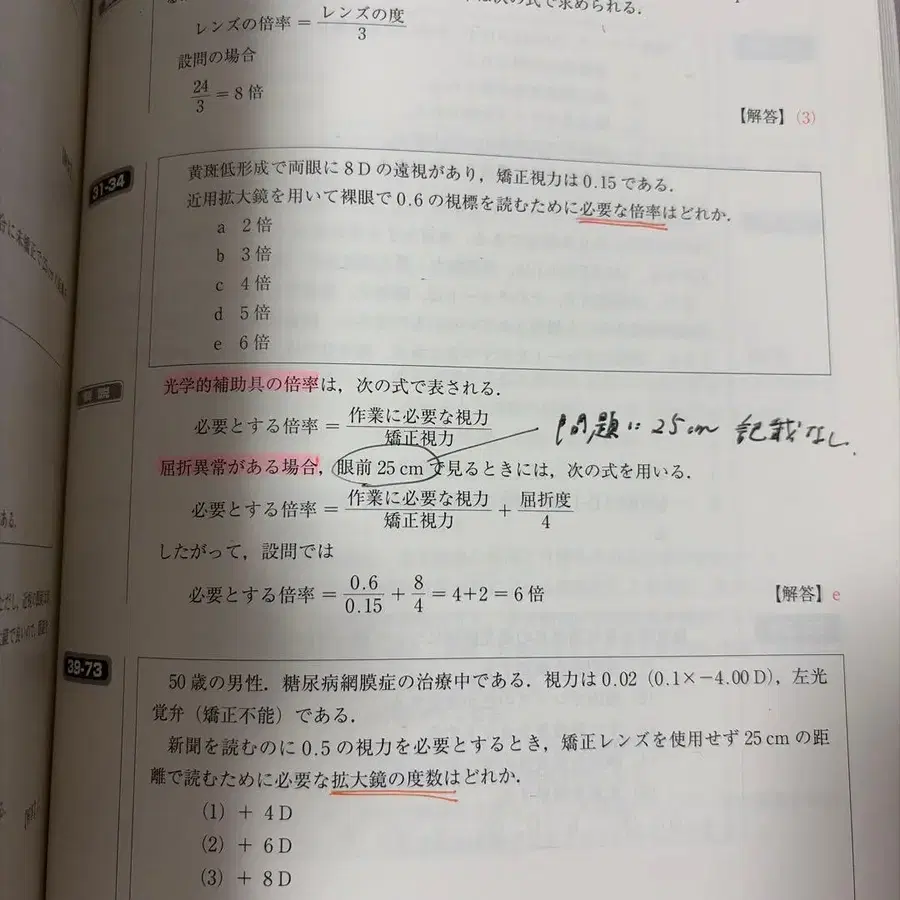 は次の式で求められる.
レンズの倍率 = レンズの度/3
設問の場合
24/3 = 8倍
【解答】(3)
31-34
黄斑低形成で両眼に8Dの遠視があり，矯正視力は0.15である.
近用拡大鏡を用いて裸眼で0.6の視標を読むために必要な倍率はどれか.
a 2倍
b 3倍
c 4倍
d 5倍
e 6倍
解説
光学的補助具の倍率は，次の式で表される.
必要とする倍率 = 作業に必要な視力/矯正視力
問題に25cm 記載なし.
屈折異常がある場合，眼前25cmで見るときには，次の式を用いる.
必要とする倍率 = 作業に必要な視力/矯正視力 + 屈折度/4
したがって，設問では
必要とする倍率 = 0.6/0.15 + 8/4 = 4+2 = 6倍
【解答】e
39-73
50歳の男性．糖尿病網膜症の治療中である．視力は0.02（0.1×−4.00D），左光
覚弁（矯正不能）である.
新聞を読むのに0.5の視力を必要とするとき，矯正レンズを使用せず25cmの距
離で読むために必要な拡大鏡の度数はどれか.
(1) + 4D
(2) + 6D
(3) + 8D